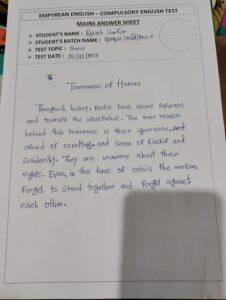 EMPYREAN ENGLISH – COMPULSORY ENGLISH TEST
MAINS ANSWER SHEET
➢ STUDENT'S NAME : Rakesh Sarkar
➢ STUDENT'S BATCH NAME :
➢ TEST TOPIC : Precis
➢ TEST DATE :
Tolerance of Human
Throughout history, People have shown Patience
and tolerate the intolerable. The main reason
behind this tolerance is their ignorance, and
afraid of revolting, and sense of kinship and
Solidarity. They are unaware about their
rights. Even, in the time of crisis the workers
forget to stand together and fought against
each other.